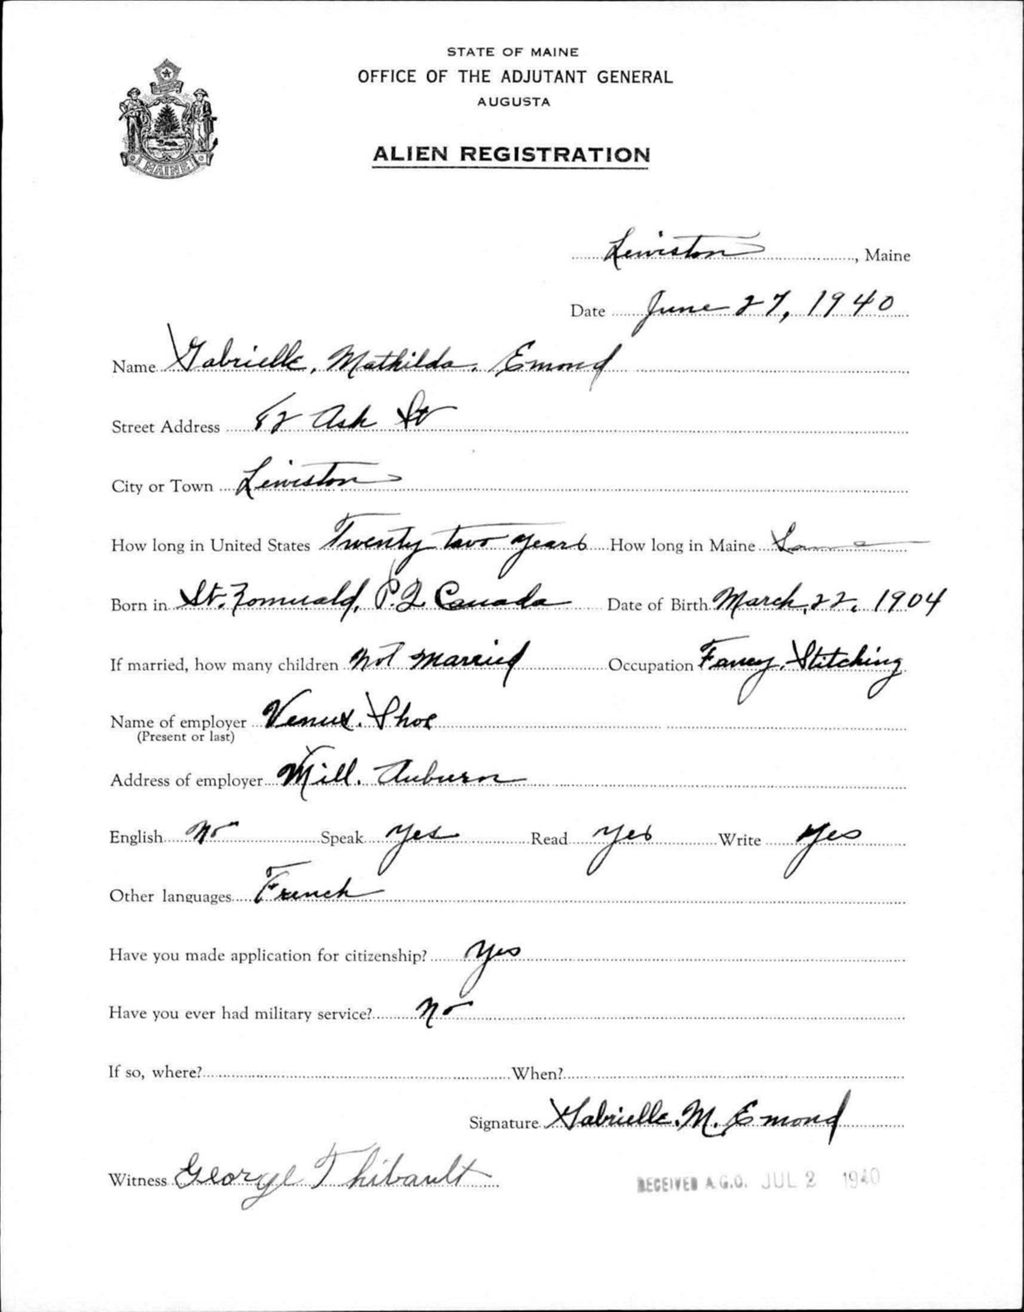 STATE OF MAINE
OFFICE OF THE ADJUTANT GENERAL
AUGUSTA
ALIEN REGISTRATION
MAINE
Lewiston, Maine
Date June 27, 1940
Name Gabrielle, Mathilda, Emond
Street Address 82 Ash St
City or Town Lewiston
How long in United States Twenty two years How long in Maine Same
Born in St. Romuald, P.Q Canada Date of Birth March, 22, 1904
If married, how many children Not Married Occupation Fancy Stitching
Name of employer Venus Shoe
(Present or last)
Address of employer Mill. Auburn
English No Speak Yes Read Yes Write Yes
Other languages French
Have you made application for citizenship? Yes
Have you ever had military service? No
If so, where? When?
Signature Gabrielle M. Emond
Witness George Thibault
RECEIVED A.G.O. JUL 2 1940